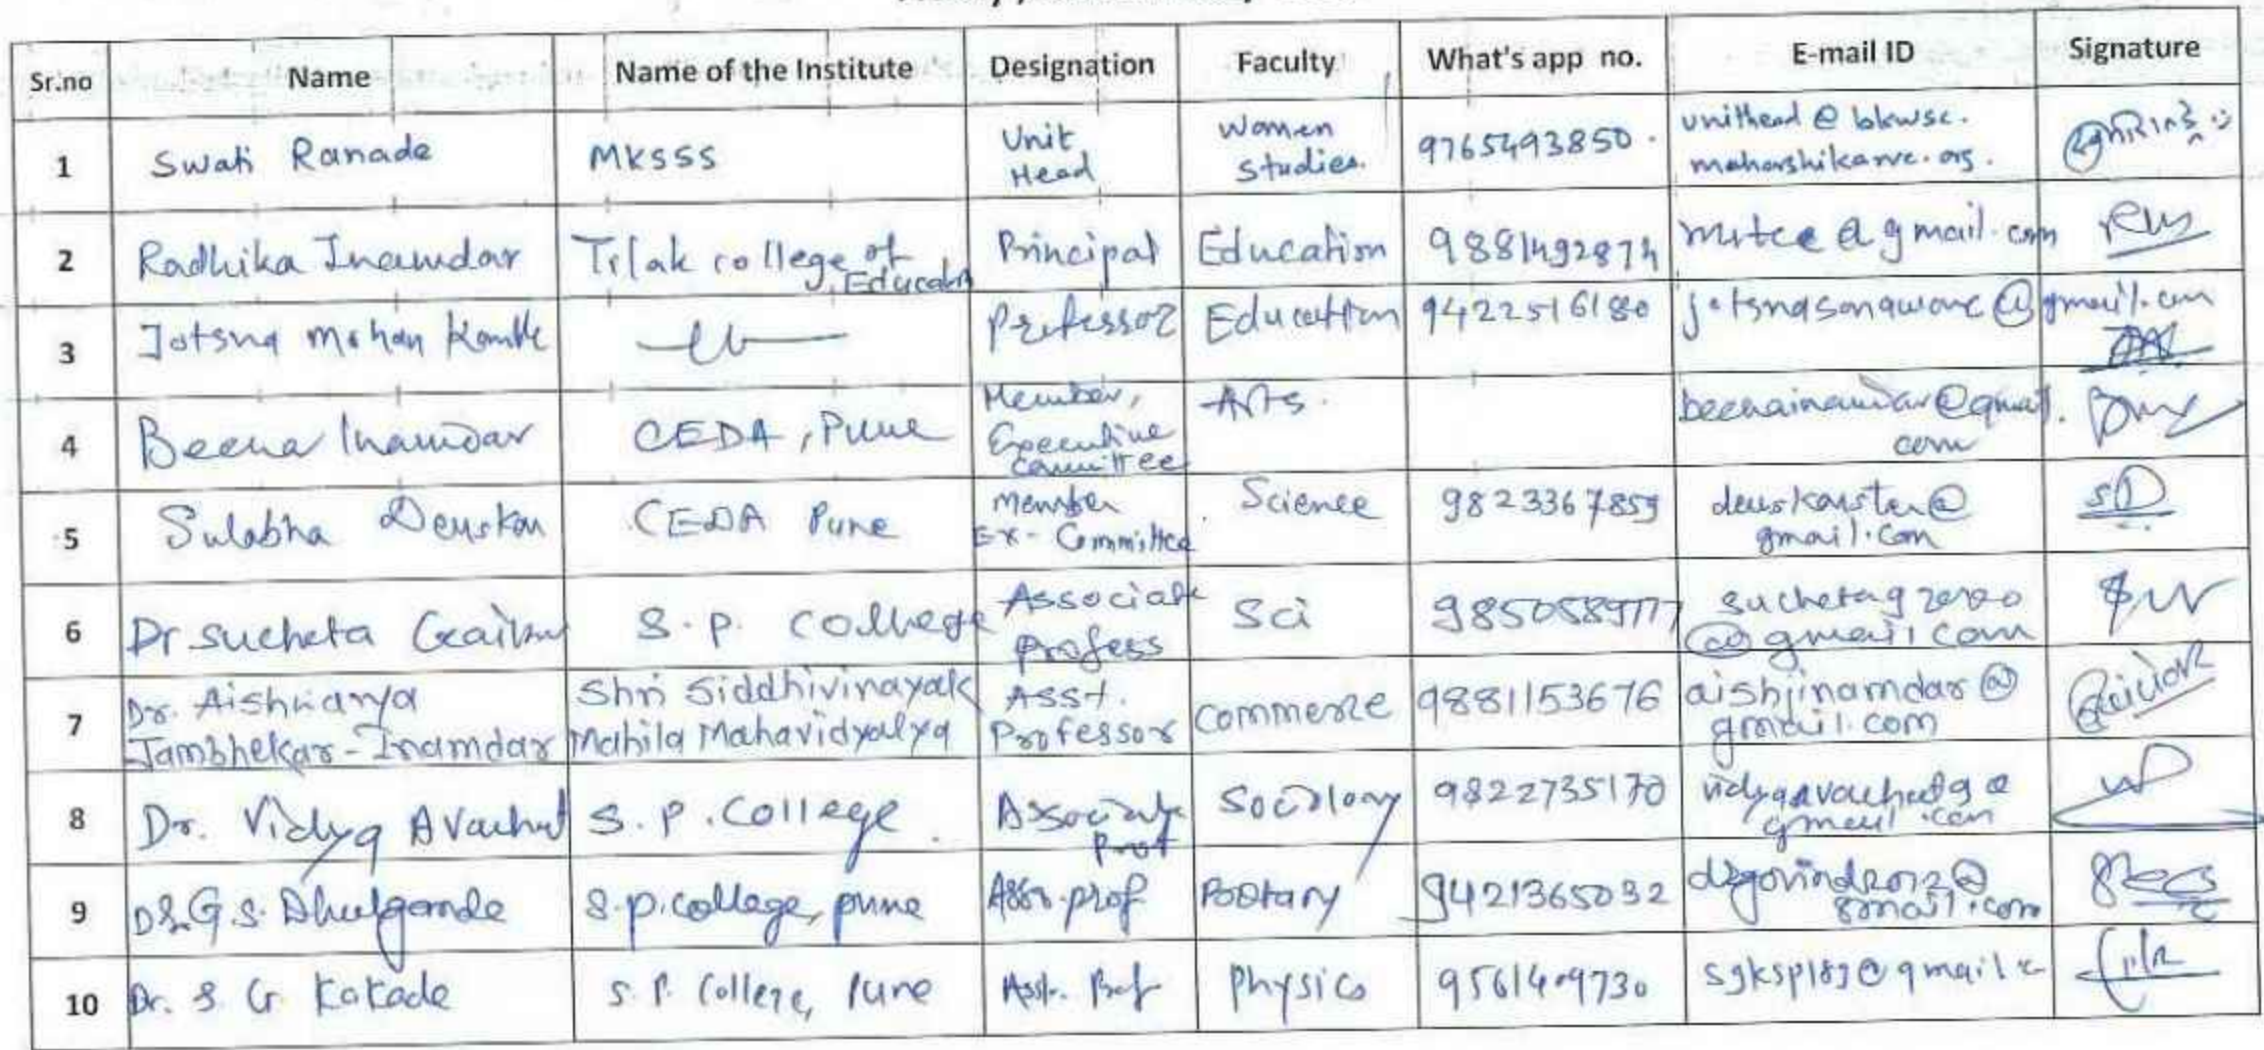 Sr.no Name Name of the Institute Designation Faculty What's app no. E-mail ID Signature
1 Swati Ranade MKSSS Unit Head Women Studies. 9765493850. unithead@bkwsc.maharshikarve.org.
2 Radhika Inamdar Tilak college of Education Principal Education 9881492874 mitce@gmail.com
3 Jotsna Mohan Kamble Professor Education 9422516180 jotsnasonawane@gmail.com
4 Beena Inamdar CEDA, Pune Member, Executive Committee Arts. beenainamdar@gmail.com
5 Sulabha Deuskar CEDA Pune Member Ex-Committee Science 9823367859 gmail.com SD
6 Dr sucheta S.P. College Associate Profess Sci 9850589777 @gmail.com
7 Dr. Aishwarya Jambhekar-Inamdar Shri Siddhivinayak Mahila Mahavidyalya Asst. Professor Commerce 9881153676 aishjinamdar@gmail.com
8 Dr. Vidya Avachat S.P. College. Associate Prof Sociology 9822735170 gmail.com
9 Dr G.S. S.P. College, pune Asso.prof Botany 9421365032 drgovind2012@gmail.com
10 Dr. S. G. Kakade S.P. College, Pune Asst. Prof Physics